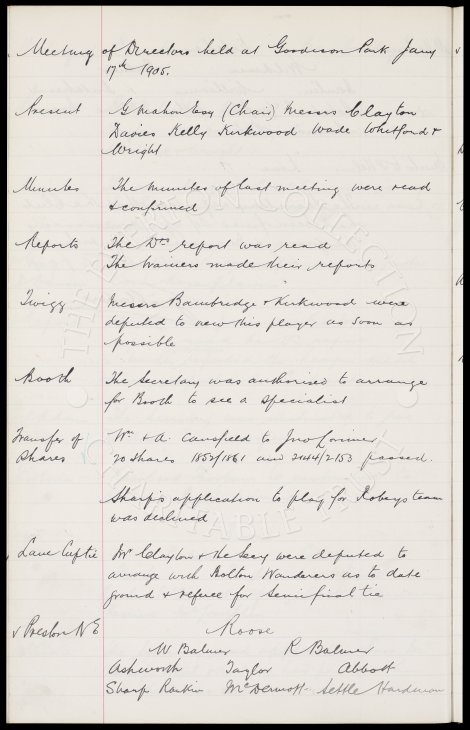 Meeting of Directors held at Goodison Park Jany
17th 1905.
Present G Mahon Esq (Chair) Messrs Clayton
Davies Kelly Kirkwood Wade Whitford &
Wright
Minutes The Minutes of last meeting were read
& confirmed
Reports The Drs report was read
The trainers made their reports
Twigg Messrs Bainbridge & Kirkwood were
deputed to view this player as soon as
possible
Booth The Secretary was authorised to arrange
for Booth to see a specialist
Transfer of Wm & A. Cansfield to Jno Lorimer
Shares 20 shares 1852/1861 and 2144/2153 passed.
Sharp's application to play for Robeys team
was declined
Lanc Cup tie Mr Clayton & the Secy were deputed to
arrange with Bolton Wanderers as to date
ground & referee for Semifinal tie
v Preston N E Roose
W Balmer R Balmer
Ashworth Taylor Abbott
Sharp Rankin McDermott Settle Hardman
THE EVERTON COLLECTION
CHARITABLE TRUST